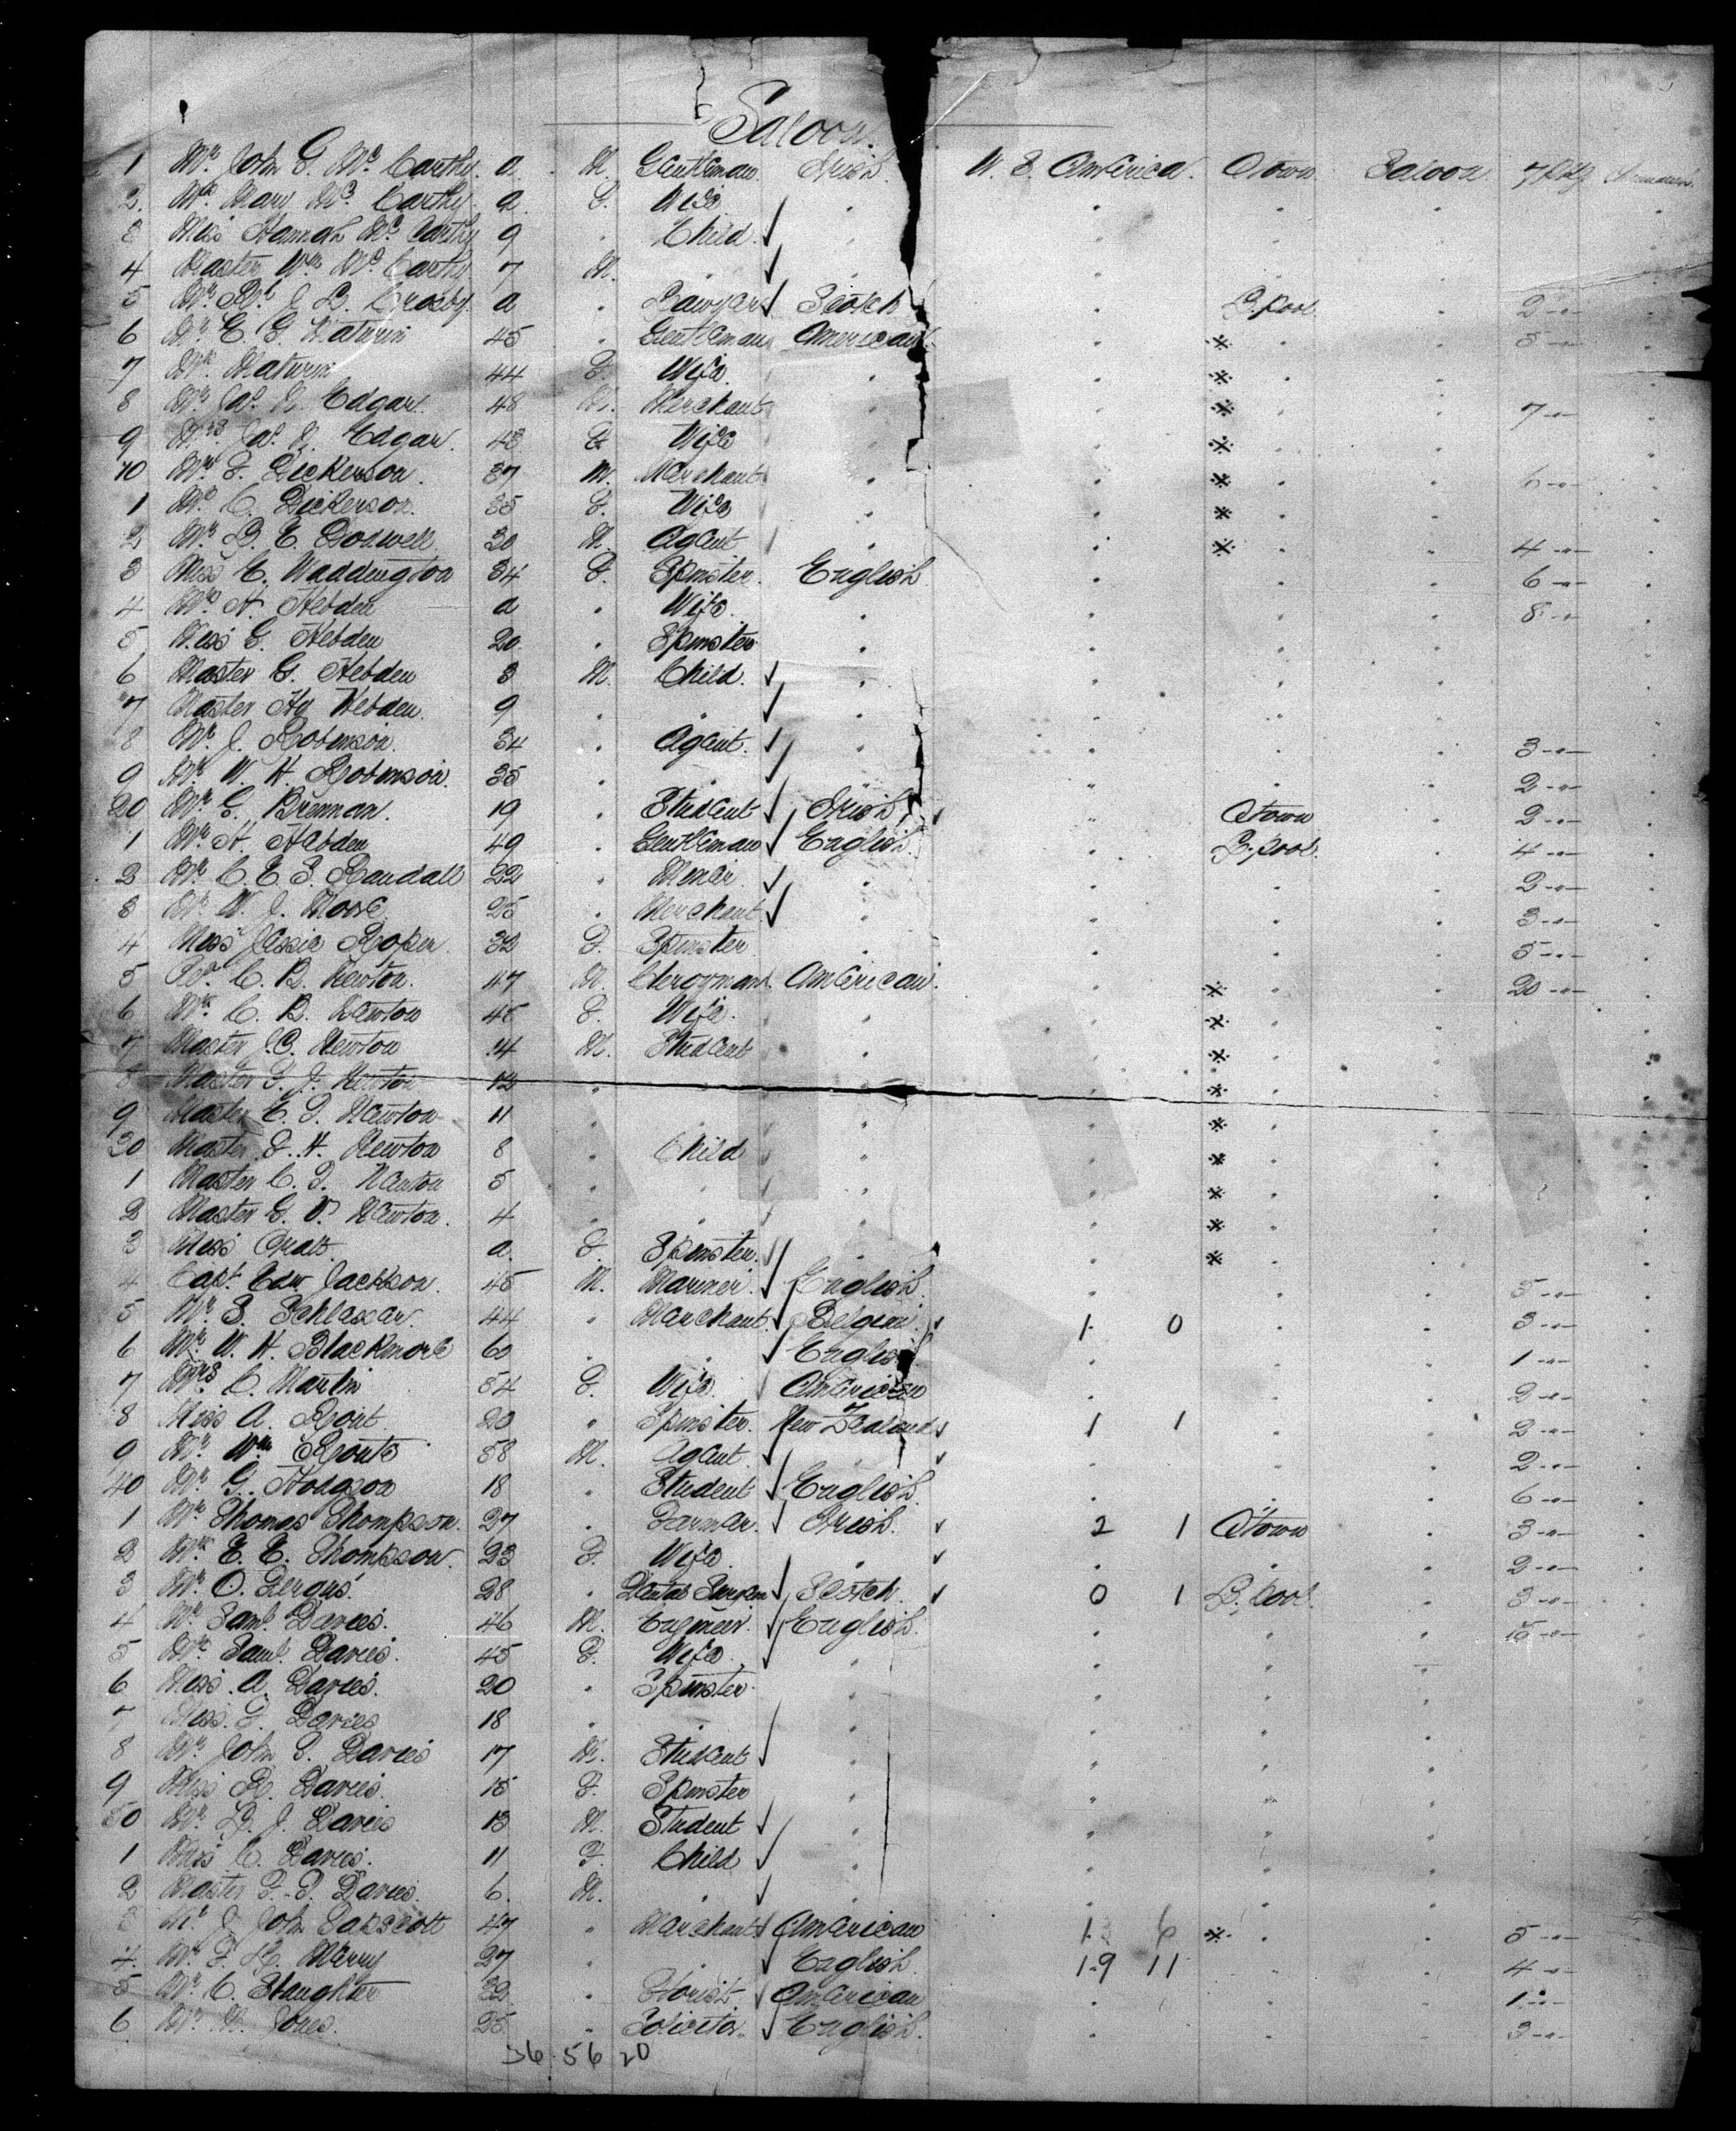 Saloon.
1 Mr. John G. McCarthy. a. M. Gentleman. Irish. U. S. America. Qtown Saloon.
2. Mrs. Mary McCarthy. a. F. Wife "
3 Miss Hannah McCarthy 9 " Child. "
4 Master Wm McCarthy 7 M. " "
5 Crosby. a " Lawyer Scotch " L.pool. " 2 -"-
6 Mr E. G. Maturin 45 " Gentleman American " " 5 -"-
7 Mrs. Maturin 44 F. Wife. "
8 Mr Jas. N. Edgar. 48 M. Merchant " 7 -"-
9 Mrs Jas. N. Edgar. 43 F Wife "
10 Mr F. Dickerson. 37 M. Merchant " 6 -"-
1 Mrs C. Dickerson. 35 F. Wife "
2 Mr B. E. Dodwell 30 M. Agent " 4 -"-
3 Miss E. Waddington 34 F. Spinster. English. " 6 -"-
4 Mrs. H. Hebden a " Wife. " 8 -"-
5 Miss G. Hebden 20. " Spinster "
6 Master G. Hebden 8 M. Child. "
7 Master Hy Hebden. 9 " " "
8 Mr. J. Robinson. 34 " Agent. " 3 -"-
9 Mr. W. H. Robinson. 35 " " 2 -"-
20 Mr G. Brennan. 19 " Student Irish " Qtown " 2 -"-
1 Mr. H. Hebden 49 " Gentleman English. " L.pool. " 4 -"-
2 Mr C. E. S. Randall 22 " " 2 -"-
3 Mr. W. J. Moore 25 " Merchant " 3 -"-
4 Miss Jessie Roper. 32 F. Spinster " 5 -"-
5 Rev. C. B. Newton. 47 M. Clergyman. American. " 20 -"-
6 Mrs. C. B. Newton 45 F. Wife. "
7 Master J.C. Newton 14 M. Student "
8 Master F. J. Newton 12 " "
9 Master E. D. Newton 11 " "
30 Master F. H. Newton 8 " Child "
1 Master C. D. Newton 5 " " "
2 Master G. V. Newton. 4 " " "
3 Miss Pratt a. F. Spinster. "
4 Capt. Edw Jackson. 45 M. Mariner. English. " 5 -"-
5 Mr. S. Schlaxar. 44 " Merchant. Belgium. 1 0 " 3 -"-
6 Mr. W. H. Blackmore 60 " " English " 1 -"-
7 Mrs. C. Martin 54 F. Wife. American " 2 -"-
8 Miss A. Rout 20 " Spinster. New Zealand 1 1 " 2 -"-
9 Mr. Wm Rout 58 M. Agent. " 2 -"-
40 Mr G. Hodgson 18 " Student English. " 6 -"-
1 Mr Thomas Thompson. 27 " Farmer. Irish. 2 1 Qtown " 3 -"-
2 Mrs. E. E. Thompson. 23 F. Wife. " 2 -"-
3 Mr. O. Fergus 28 " Dental Surgeon Scotch. 0 1 L.pool. " 3 -"-
4 Mr Saml. Davies. 46 M. Engineer. English. " 15 -"-
5 Mrs. Saml. Davies. 45 F. Wife. "
6 Miss. A. Davies. 20 " Spinster. "
7 Miss. F. Davies 18 " " "
8 Mr. John S. Davies 17 M. Student "
9 Miss R. Davies. 15 F. Spinster "
50 Mr. D. J. Davies 13 M. Student "
1 Miss C. Davies. 11 F. Child "
2 Master F. S. Davies. 6. M. " "
3 Mr J. John Tapscott 47 " Merchant American 1 6 " 5 -"-
4. Mr. F. H. Merry 27 " " English. 19 11 " 4 -"-
5 Mr C. Slaughter 32 " Florist American " 1 -"-
6 Mr. M. Jones. 25 " Solicitor. English. " 3 -"-
36 56 20